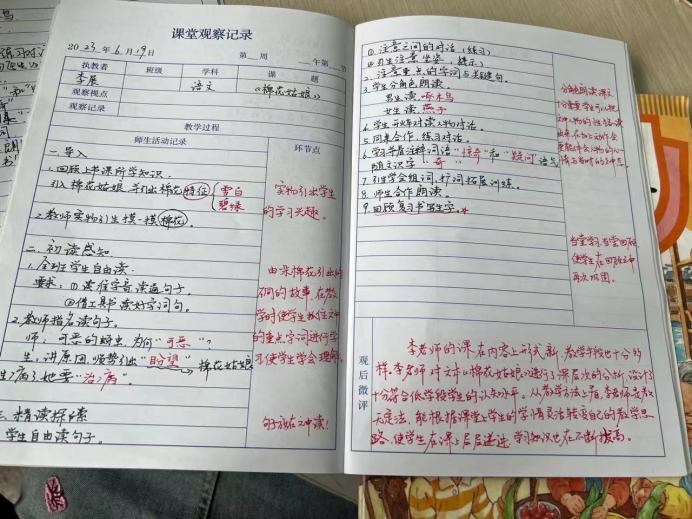 课堂观察记录
2023年6月19日 第 周 年 第 节
执教者 班级 学科 课题
李展 语文 《棉花姑娘》
观察视点
观察记录
教学过程
师生活动记录 环节点
一、导入
1.回顾上课所学知识.
引入棉花姑娘,并引出棉花特征 雪白 碧绿
2.教师实物引生摸一摸棉花.
实物引出学生
的学习兴趣.
二、初读感知
1.全班学生自由读.
要求:①读准字音读通句子.
②借工具书读好字词句.
2.教师指名读句子.
师:可恶的蚜虫,为何"可恶"?
生:讲原因,顺势引出"盼望"→棉花姑娘
生病了,她要"治病".
由朵棉花引出
的故事,在教
学时使学生
的重点字词进行学
习使学生学会理解.
三、精读探索
学生自由读句子.
句子放在文中读!
①注意之间的对话(练习)
④引生注意坐姿(提示)
2.注意重点的字词与关键句.
3.学生分角色朗读.
男生读:啄木鸟
女生读:燕子
4.学生开始对读人物对话.
5.同桌合作,练习对话.
6.学习并看注释词语"惊奇"和"疑问"语气
随文识字:"奇"
7.引生学会组词,好词拓展训练.
8.师生合作朗读.
9.回顾复习书写生字.
分角色朗读课文
十分重要,学生可以把
文中人物的性格读
出来,
当堂学习当堂回顾
使学生在回顾之中
再次巩固.
观后微评
李老师的课在内容上形式新,教学手段也十分多
样.李老师对文中《棉花姑娘》进行了深层次的分析,设计了
十分符合低学段学生的认知水平.从教学方法上看,李老师是教
无定法,能根据课堂上学生的学情灵活转变自己的教学思
路,使学生在课上层层递进,学习知识也在不断拔高.